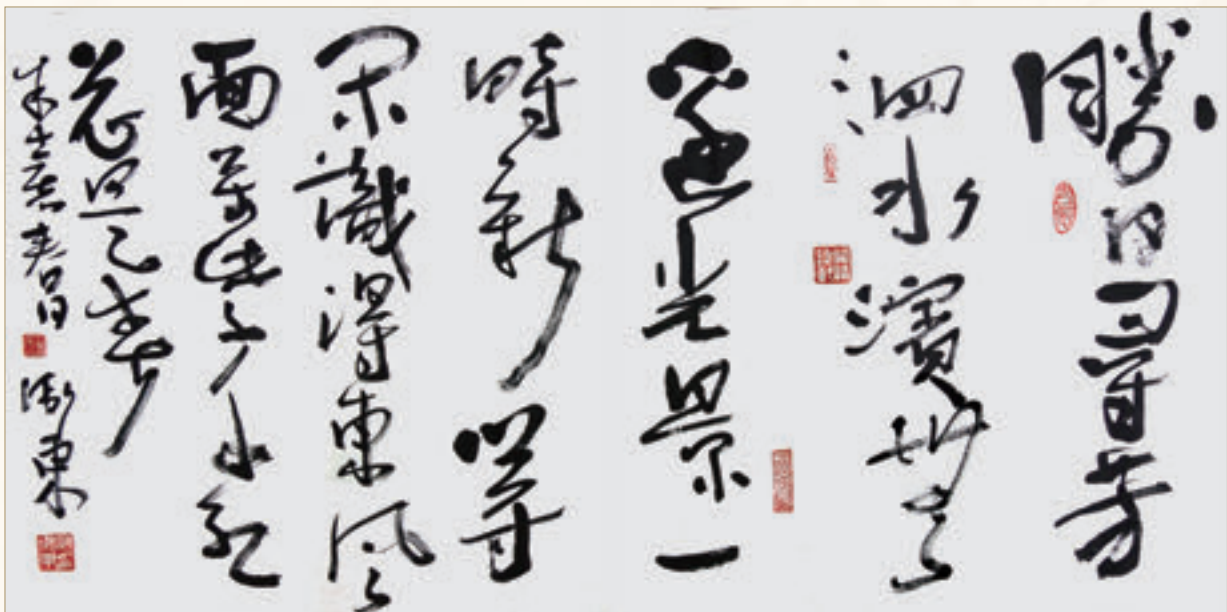 勝日尋芳
泗水濱無
邊光景一
時新等
閒識得東風
面萬紫千紅
總是春
朱熹春日
東